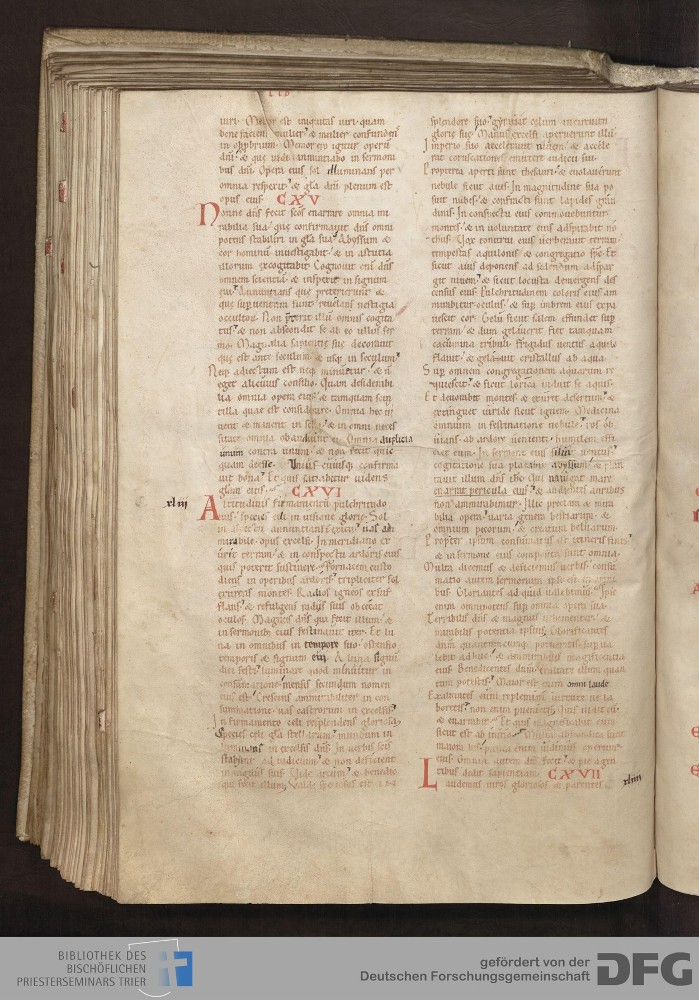 LIB
uiri. Melior est iniquitas uiri quam
bene faciens mulier & mulier confundens
in opprobrium. Memor ero igitur operum
dñi & que uidi annuntiabo in sermoni
bus dñi. Opera eius sol illuminans per
omnia respexit & gła dñi plenum est
opus eius. CXV
Nonne dñs fecit scōs enarrare omnia mi
rabilia sua que confirmauit dñs omni
potens stabiliri in gła sua. Abyssum &
cor hominum inuestigabit & in astutia
illorum excogitabit. Cognouit eni dñs
omnem scientiā & inspexit in signum
eui. Annuntians que preterierunt &
que superuentura sunt reuelans uestigia
occultorum. Non preterit illū omnis cogita
tus & non abscondit se ab eo ullus ser
mo. Magnalia sapientie sue decorauit
que est ante seculum & usq; in seculum
Neq; adiectum est neq; minuetur & n
eget alicuius consilio. Quam desiderabi
lia omnia opera eius & tamquam scin
tilla quae est considerare. Omnia hec ui
uent & manent in
sitate omnia obaudiunt ei. Omnia duplicia
unum contra unum & non fecit quic
quam deesse. Unius cuiusq; confirma
uit bona. Et quis satiabitur uidens
gloriam eius. CXVI
xliii
Altitudinis firmamenti pulchritudo
eius species celi in uisione glorie. Sol
in aspectu annuntians exitu uas ad
mirabile opus excelsi. In meridiano ex
urit terram & in conspectu ardoris eius
quis poterit sustinere. Fornacem custo
diens in operibus ardoris tripliciter sol
exurens montes. Radios igneos exsuf
flans & refulgens radiis suis obcecat
oculos. Magnus dñs qui fecit illum &
in sermonibus eius festinauit iter. Et lu
na in omnibus in tempore suo ostensio
temporis & signum eui. A luna signū
diei festi luminare quod minuitur in
consummatione mensis secundum nomen
eius est. Crescens mirabiliter in con
summatione uas castrorum in excelsis
in firmamento celi resplendens gloriose
Species celi gła stellarum mundum in
luminans in excelsis dñs. In uerbis scis
stabunt ad iudicium & non deficient
in uigiliis suis. Vide arcum & benedic
qui fecit illum. Valde speciosus est in
splendore suo gyrauit celum in circuitu
glorie sue. Manus excelsi aperuerunt illū
Imperio suo accelerauit niuem & accele
rat coruscationes emittere iudicii sui
Propterea aperti sunt thesauri & euolauerunt
nebule sicut aues. In magnitudine sua po
suit nubes & confracti sunt lapides gran
dinis. In conspectu eius commouebuntur
montes & in uoluntate eius aspirabit no
thus. Vox tonitrui eius uerberauit terram
tempestas aquilonis & congregatio sps. Et
sicut auis deponens ad sedendum aspar
git niuem & sicut locusta demergens des
census eius. Pulchritudinem coloris eius am
mirabitur oculus & sup imbrem eius expa
uescit cor. Gelu sicut salem effundet sup
terram & dum gelauerit fiet tamquam
cacumina tribuli. Frigidus uentus aquilo
flauit & gelauit cristallus ab aqua.
Sup omnem congregationem aquarum re
quiescit & sicut lorica induit se aquis
Et deuorabit montes & exuret desertum &
extinguet uiride sicut ignem. Medicina
omnium in festinatione nebule ros ob
uians ab ardore uenienti humilem effi
ciet eum. In sermone eius siluit uentus
cogitatione sua placabit abyssum & plan
tauit illum dñs ihc. Qui nauigant mare
enarrent pericula eius & audientes auribus
non ammirabimur. Illic preclara & mira
bilia opera uaria genera bestiarum &
omnium pecorum & creatura beluarum.
Propter ipsum confirmatus est itineris finis
& in sermone eius composita sunt omnia.
Multa dicemus & deficiemus uerbis consū
matio autem sermonum ipse est in omni
bus. Gloriantes ad quid ualebimus. Ipse
enim omnipotens sup omnia opera sua.
Terribilis dñs & magnus uehementer &
mirabilis potentia ipsius. Glorificantes
dñm quantumcumq; potueritis supua
lebit adhuc & ammirabilis magnificentia
eius. Benedicentes dñm exaltate illum quan
tum potestis. Maior est enim omni laude
Exaltantes eum replemini uirtute ne la
boretis non enim peruenietis. Quis uidit eū
& enarrabit. Et quis magnificabit eum
sicut est ab initio. Multa abscondita sunt
maiora his pauca enim uidimus operum
eius. Omnia autem dñs fecit & pie agen
tibus dedit sapientiam. CXVII
Laudemus uiros gloriosos & parentes
xliiii
BIBLIOTHEK DES
BISCHÖFLICHEN
PRIESTERSEMINARS TRIER
gefördert von der
Deutschen Forschungsgemeinschaft
DFG